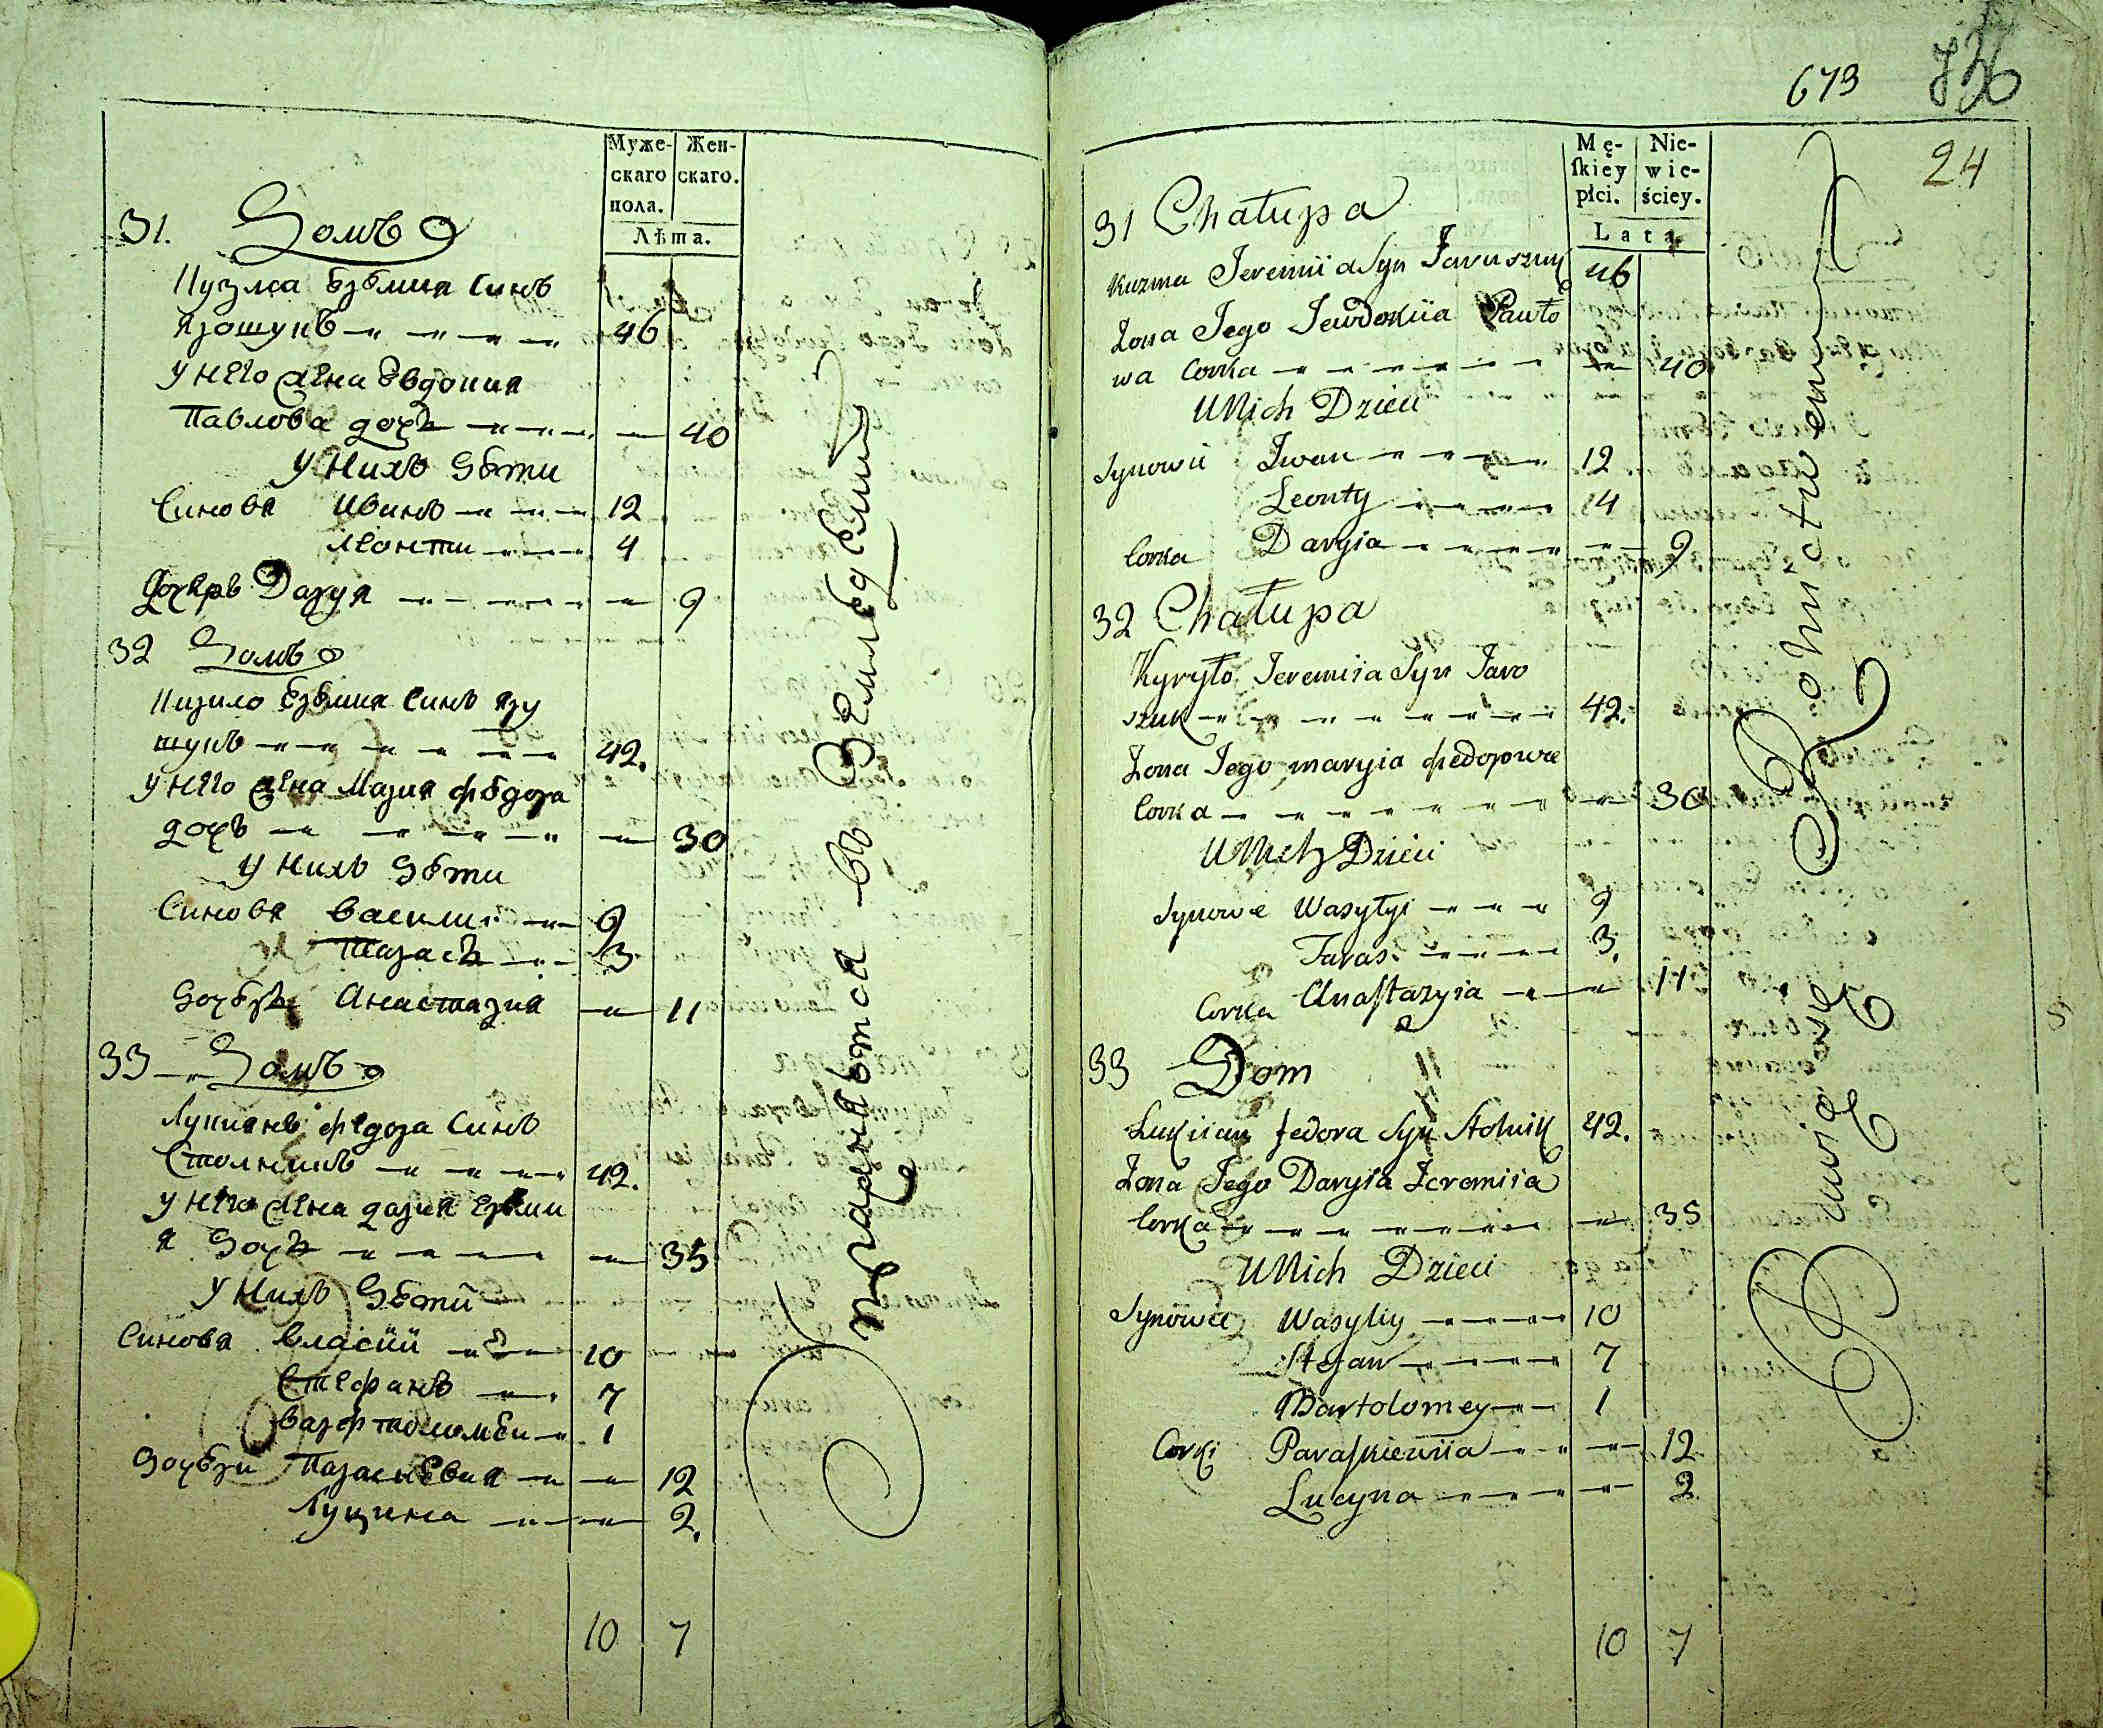 Муже-
скаго
пола.
Жен-
скаго.
Лѣта.
31. Домъ
Кузма Еремия Синъ
Ярошукъ 46
У него жена Евдокия
Павлова дочъ 40
У нихъ Дѣти
Синовя Иванъ 12
Леонти 4
Дочеръ Дария 9
32 Домъ
Кирило Еремия Синъ Яру
шукъ 42.
У него жена Мария Федора
дочъ 30
У нихъ Дѣти
Синовя Василий 9
Тарасъ 3
Дочеръ Анастазия 11
33 Домъ
Лукиянъ Федора Синъ
Столникъ 42.
У него жена Дария Ереми
я Дочъ 35
У нихъ Дѣти
Синовя Власий 10
Стефанъ 7
Варфтоломеи 1
Дочери Параскевия 12
Луцина 2.
10 7
673
736
24
Mę-
ſkiey
płci.
Nie-
wie-
ściey.
Lata.
31 Chałupa
Kuzma Jeremii a Syn Jaruszuk 46
Żona Jego Jewdokiia Pawło
wa Corka 40
U Nich Dzieci
Synowie Iwan 12
Leonty 14
Corka Daryia 9
32 Chałupa
Kyryło Jeremiia Syn Jaro
szuk 42.
Żona Jego maryia Fedorowa
Corka 30
U Nich Dzieci
Synowe Wasyłyi 9
Taras 3.
Corka Anaſtazyia 11
33 Dom
Lukiian fedora Syn Stolnik 42.
Żona Jego Daryia Jeremiia
Corka 35
U Nich Dzieci
Synowie Wasyliy 10
Stefan 7
Bartolomey 1
Corki Paraſkiewiia 12
Lucyna 2
10 7